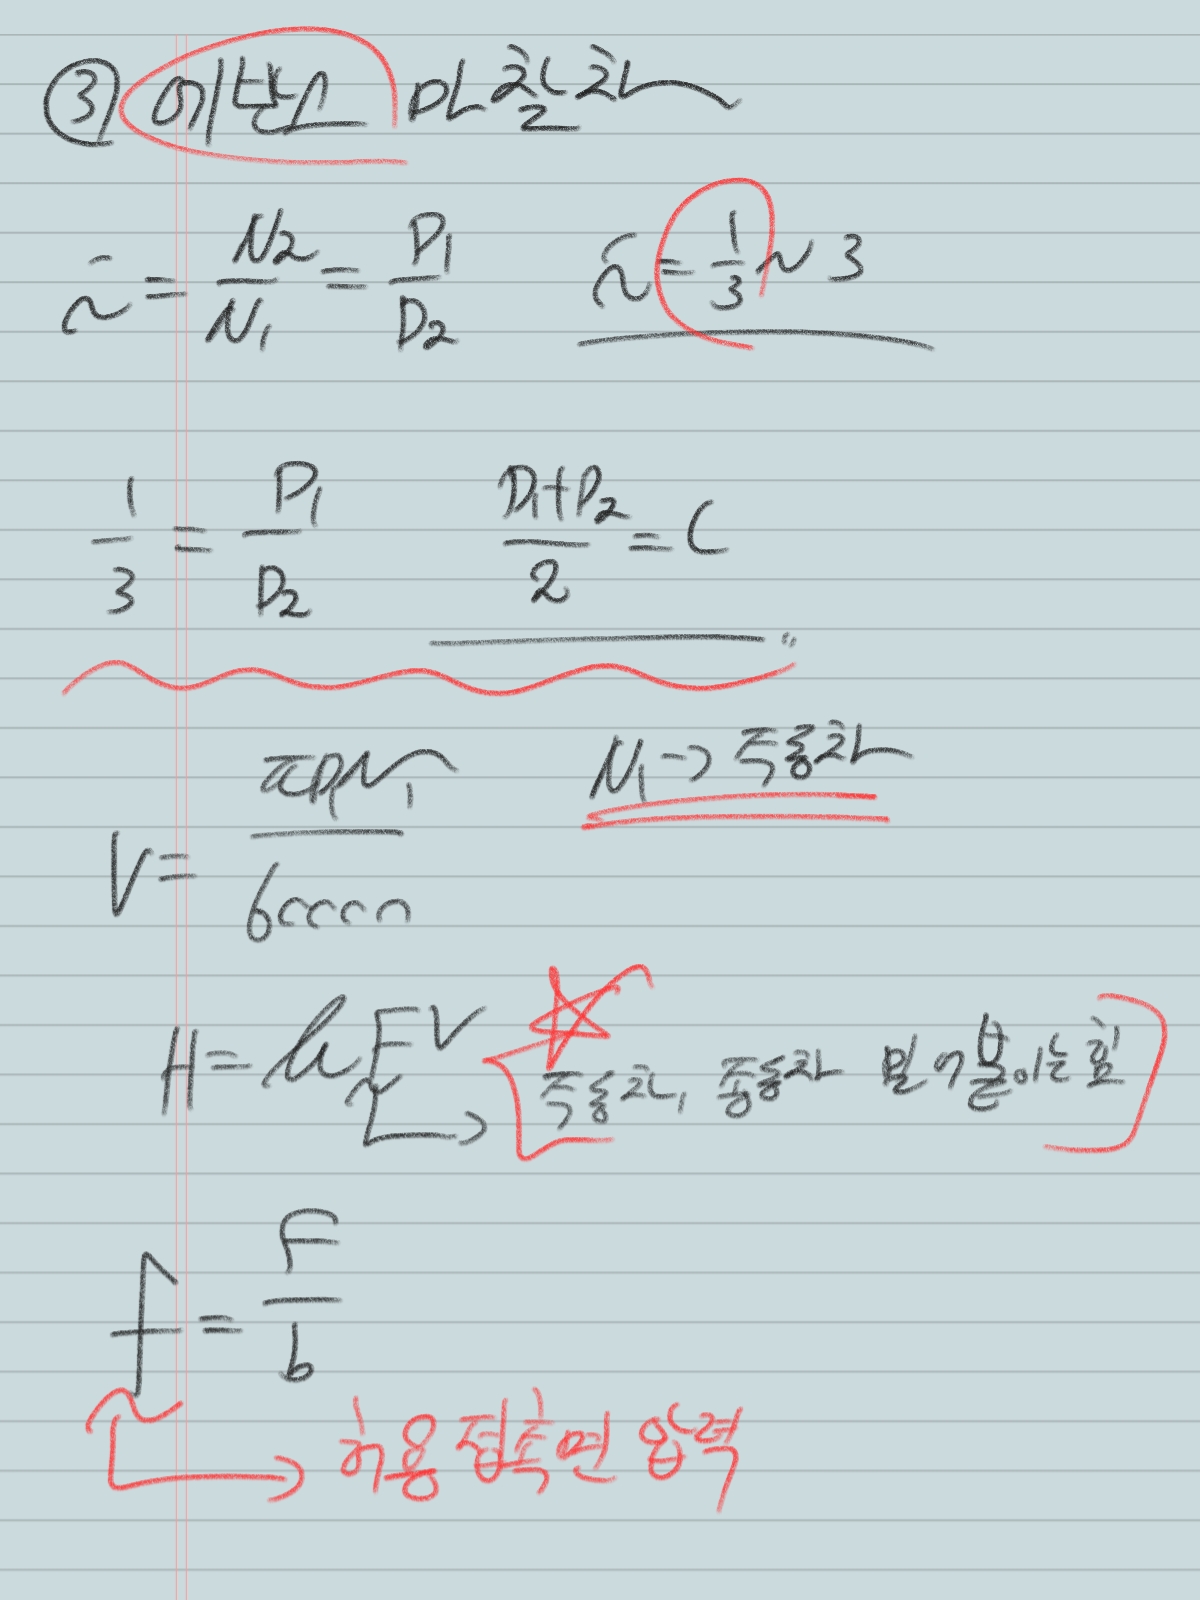 ③ 에반스 마찰차
i = N2/N1 = D1/D2 i = 1/3 ~ 3
1/3 = D1/D2 (D1+D2)/2 = C
V = πDN1/60000 N1 → 주동차
H = μFV → 주동차, 종동차 밀어붙이는힘
f = F/b
→ 허용접촉면압력